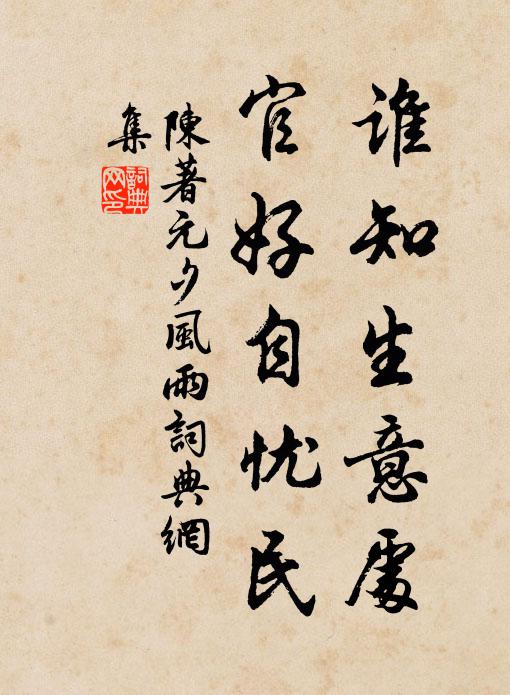 谁知生意處
官好自忧民
陳著元夕風雨詞典網
集
詞典
网印